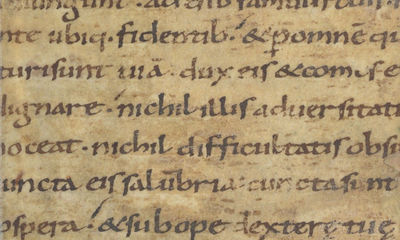 nte ubiq. fidentib. & p omnē qu
turi sunt uiā. dux eis & comes e
dignare. nichil illis aduersitati
noceat. nichil difficultatis obsi
cuncta eis salubria. cuncta sint
ospera. & sub ope dexterę tuę